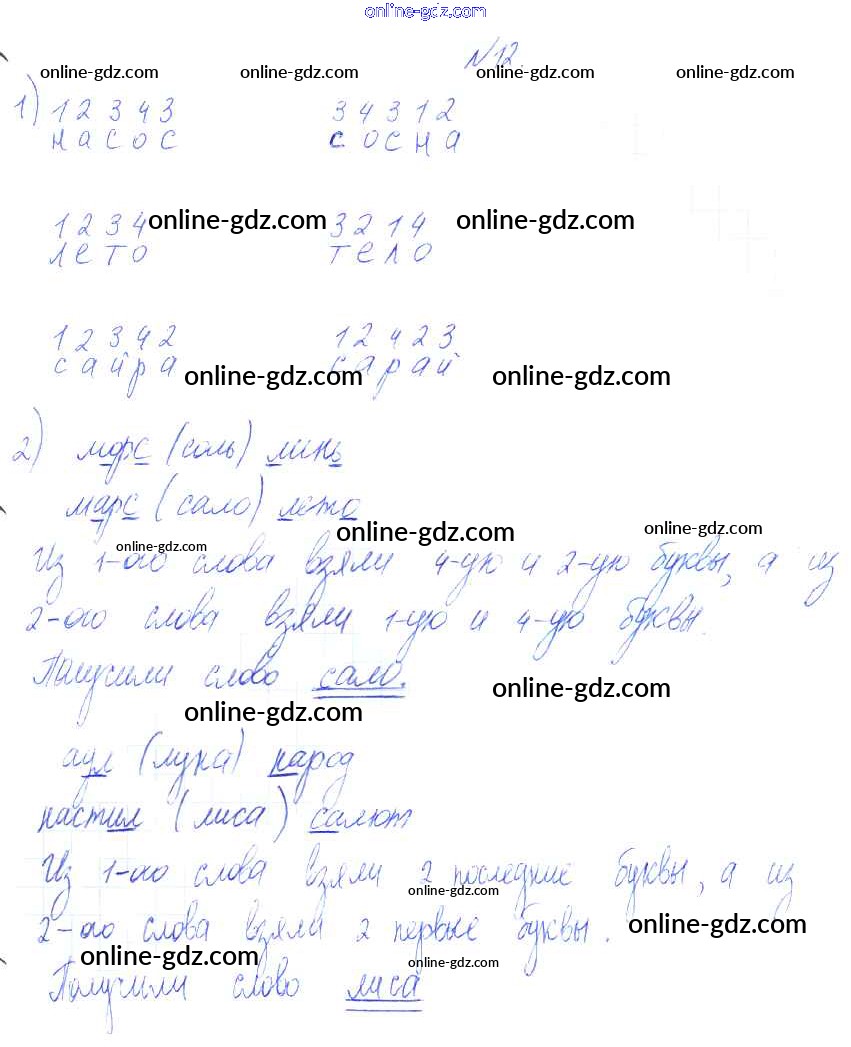 online-gdz.com
№12.
online-gdz.com online-gdz.com online-gdz.com online-gdz.com
1) 1 2 3 4 3 3 4 3 1 2
н а с о с с о с н а
1 2 3 4 online-gdz.com 3 2 1 4 online-gdz.com
л е т о т е л о
1 2 3 4 2 1 2 4 2 3
с а й р а online-gdz.com с а р а й online-gdz.com
2) морс (соль) линь
марс (сало) лето
online-gdz.com online-gdz.com online-gdz.com
Из 1-ого слова взяли 4-ую и 2-ую буквы, а из
2-ого слова взяли 1-ую и 4-ую буквы.
Получили слово сало.
online-gdz.com online-gdz.com
аул (лука) народ
настил (лиса) салют
Из 1-ого слова взяли 2 последние буквы, а из
online-gdz.com
2-ого слова взяли 2 первые буквы. online-gdz.com
online-gdz.com online-gdz.com
Получили слово лиса